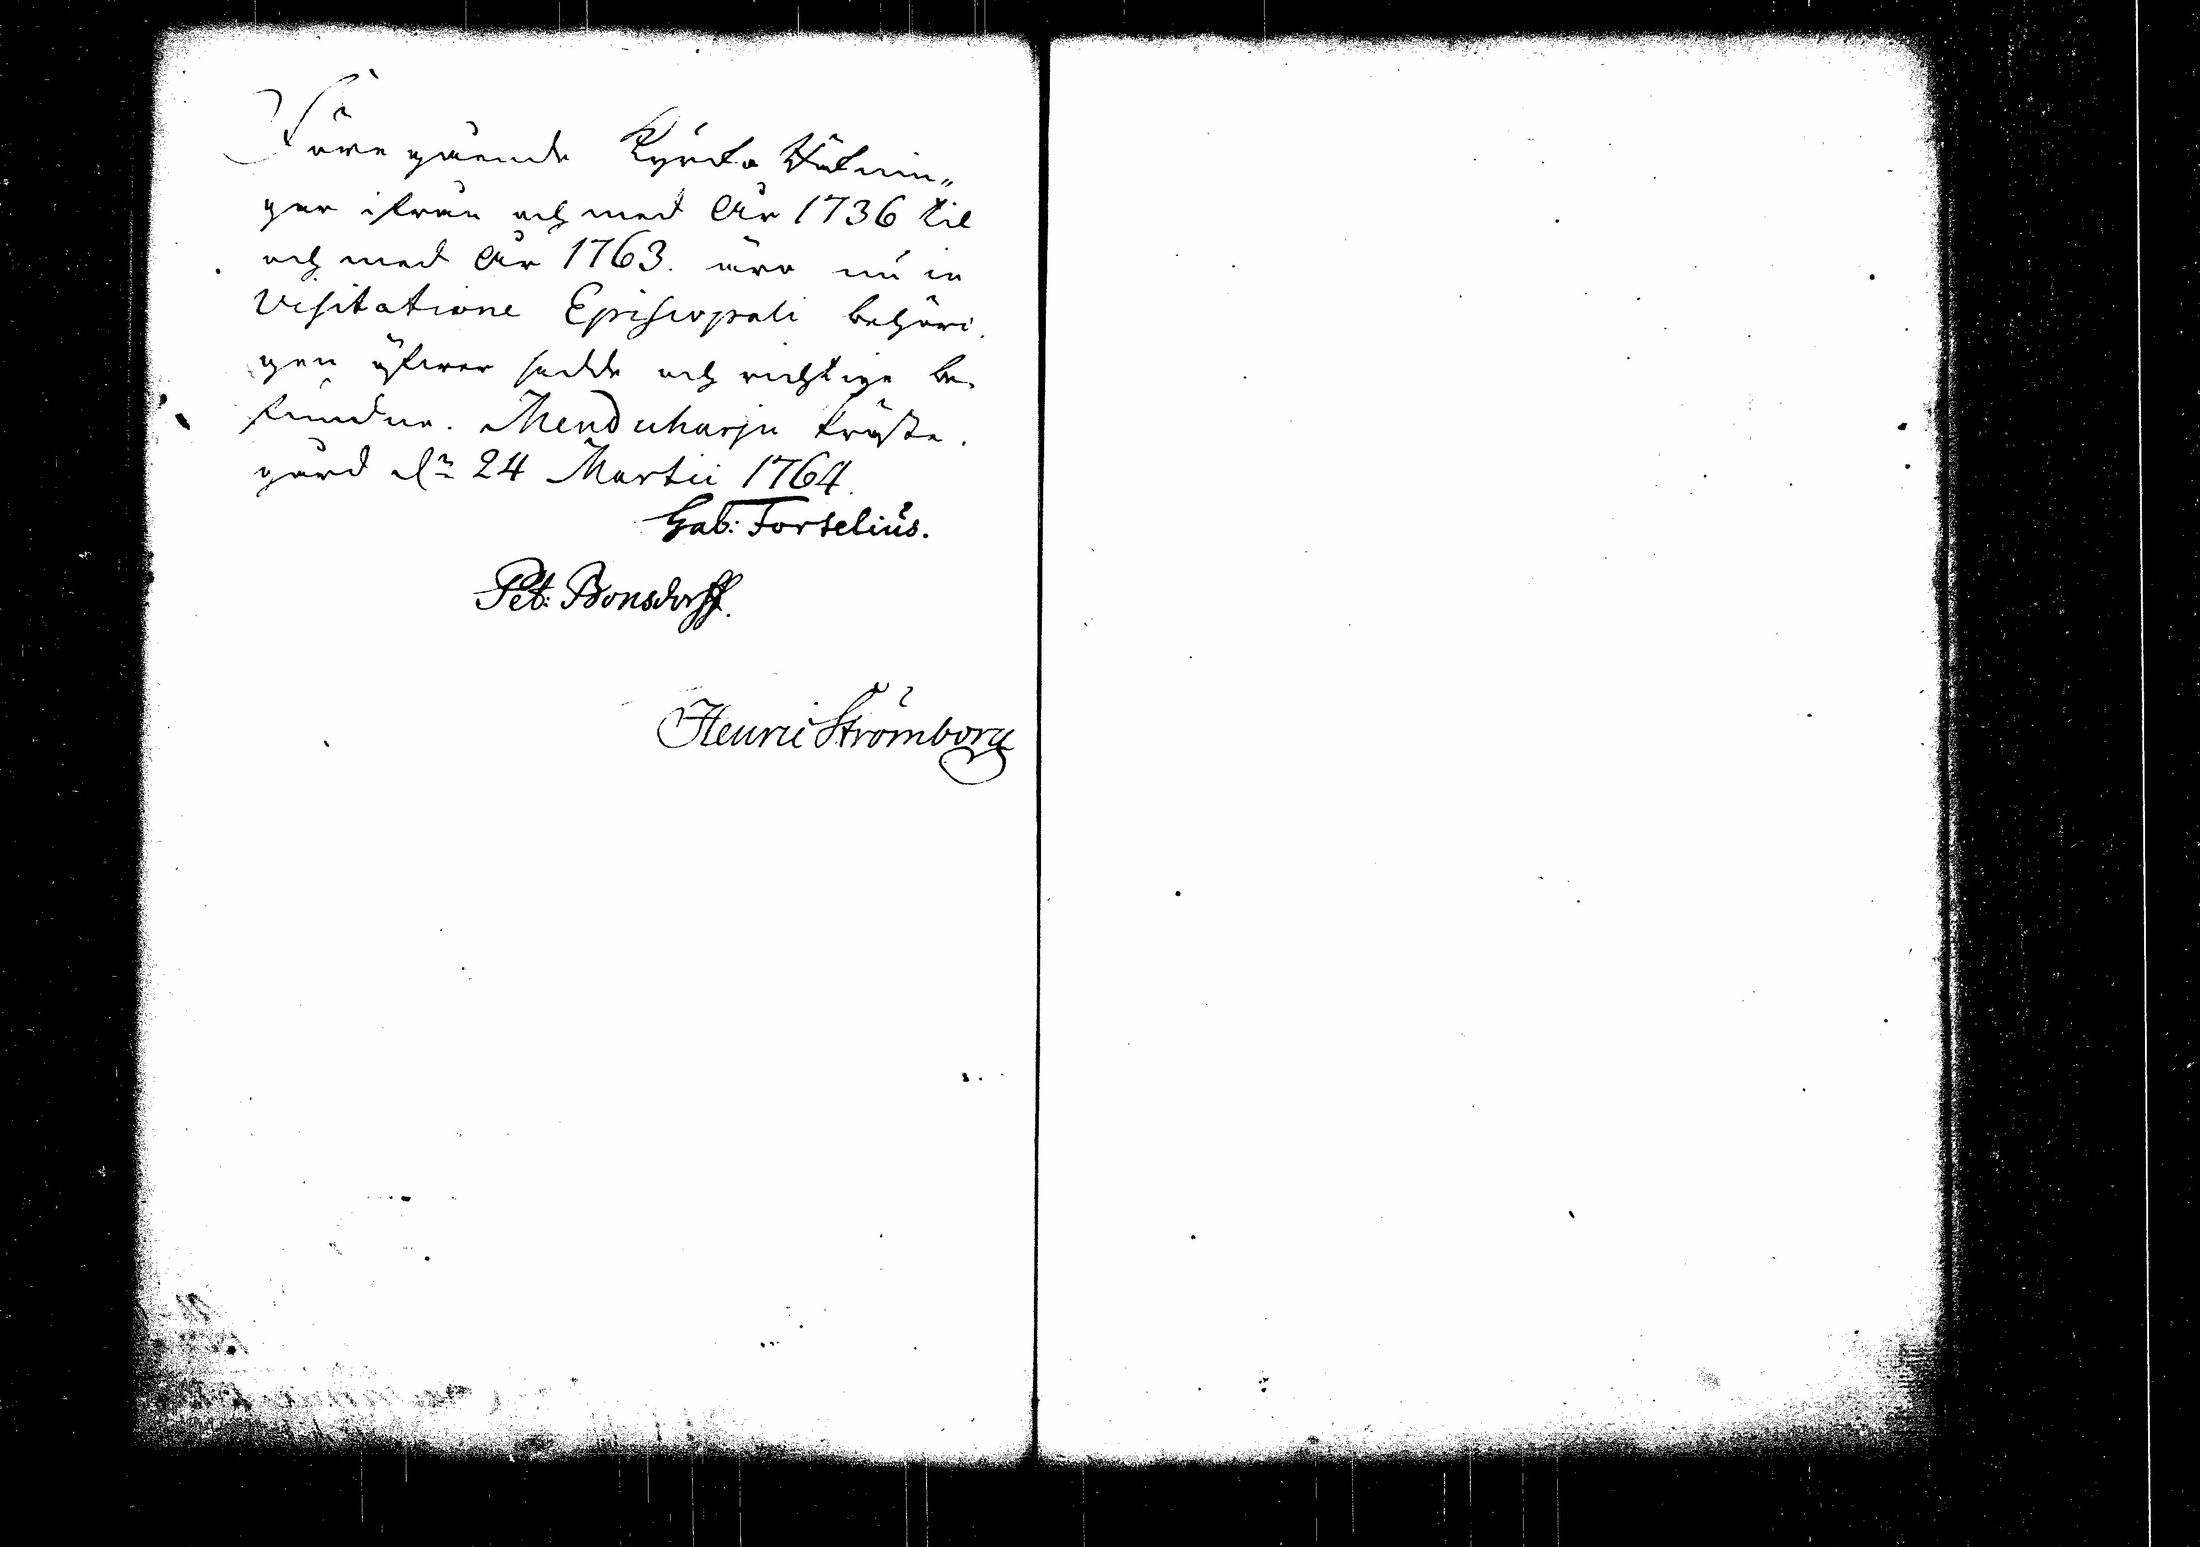 Före gående Kyrcko Räknin„
gar ifrån och med År 1736 til
och med År 1763. äro nu in
Visitatione Episcopali behöri„
gen öfwer sedde och richtige be„
fundne. Menduharju Präste„
gård dn 24 Martii 1764.
Gab: Fortelius.
Pet: Bonsdorff.
Henric Strömborg